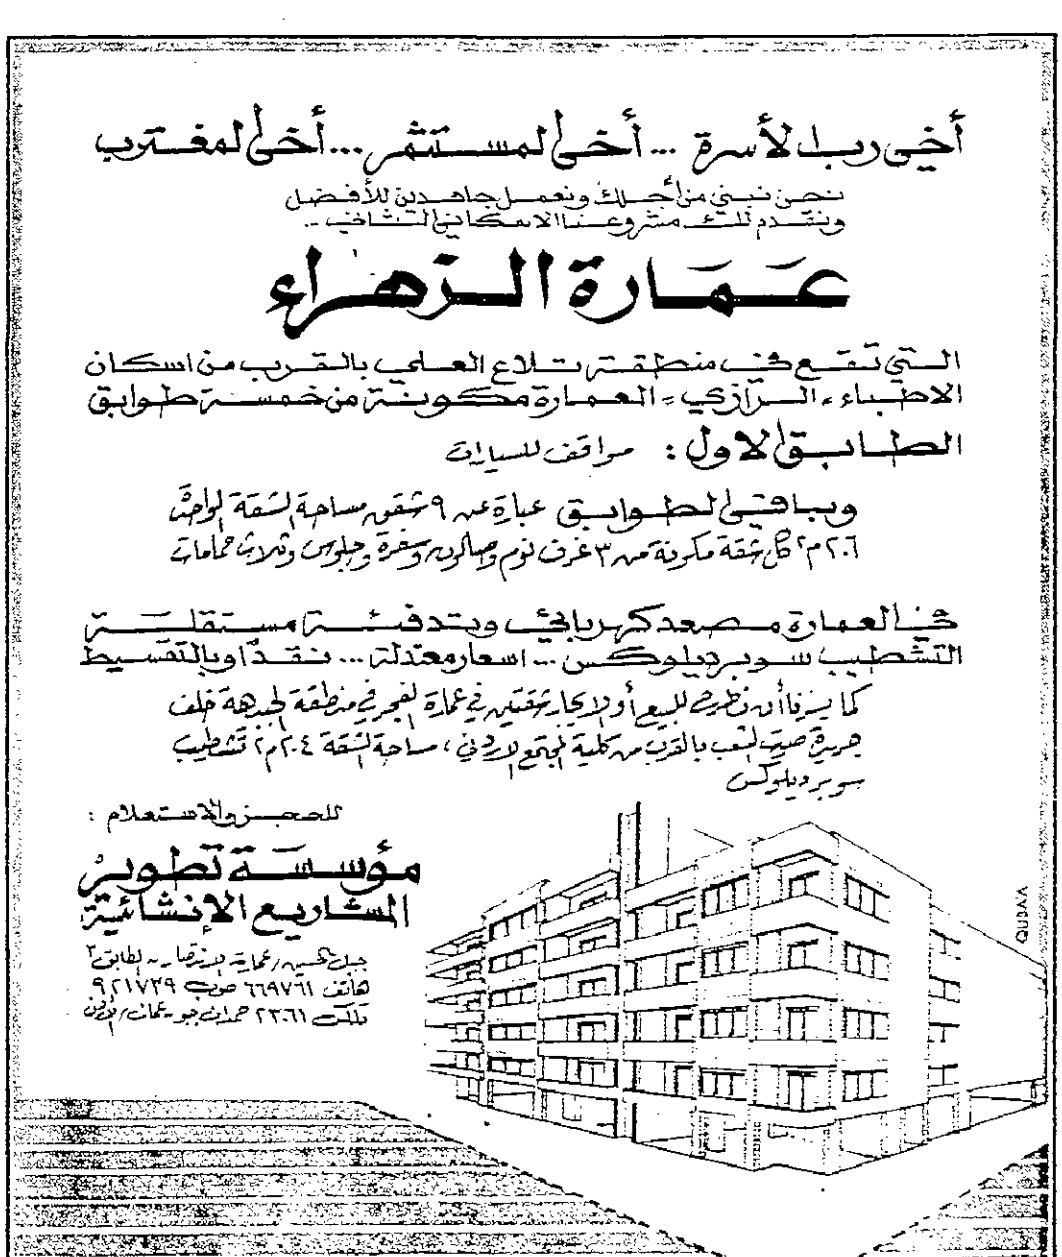 أخي رب الأسرة ... أخي المستثمر ... أخي المغترب
نحن نبني من أجلك ونعمل جاهدين للأفضل
ونقدم لك مشروعنا الاسكاني الثاني ..
عمارة الزهراء
التي تقع في منطقة تلاع العلي بالقرب من اسكان
الاطباء ، الرازي ، العمارة مكونة من خمسة طوابق
الطابق الاول : مواقف للسيارات
وباقي الطوابق عبارة عن ٩ شقق مساحة الشقة الواحدة
٢٠٦ م٢ كل شقة مكونة من ٣ غرف نوم وصالون وسفرة وجلوس وثلاث حمامات
في العمارة مصعد كهربائي وتدفئة مستقلة
التشطيب سوبر ديلوكس ... اسعار معتدلة ... نقداً وبالتقسيط
كما يسرنا أن نطرح للبيع أو الايجار شقتين في عمارة الفجر في منطقة الجبيهة خلف
جريدة صوت الشعب بالقرب من كلية المجتمع الاردني ، مساحة الشقة ٢٠٤ م٢ تشطيب
سوبر ديلوكس
للحجز والاستعلام :
مؤسسة تطوير
المشاريع الإنشائية
جبل الحسين / عمارة الطابق ٢
هاتف ٦٦٩٧٦١ ص.ب ٩٢١٧٣٩
تلكس ٢٣٠٦١ حمدان جو - عمان / الاردن
QUBAA